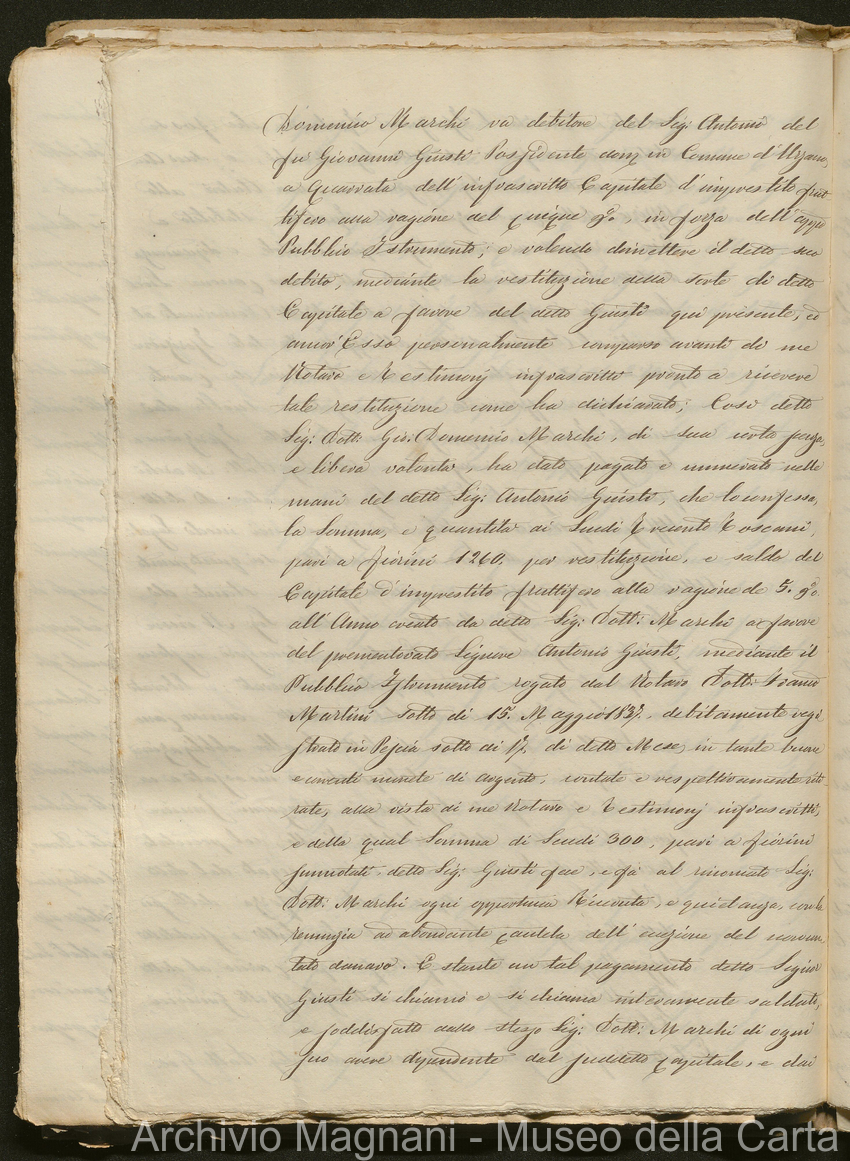 Domenico Marchi va debitore del Sig: Antonio del
fù Giovanni Giusti Possidente dom: in Comune d'Uzzano,
a Quarrata dell'infrascritto Capitale d'imprestito frut-
tifero alla ragione del cinque p%, in forza dell'appo
Pubblico Istrumento; e volendo dimettere il detto suo
debito, mediante la restituzione della sorte di detto
Capitale a favore del detto Giusti qui presente, ed
ancor'Esso personalmente comparso avanti di me
Notaro e Testimonj infrascritti pronto a ricevere
tale restituzione come ha dichiarato; Così detto
Sig: Dott: Gio: Domenico Marchi, di sua certa scienza,
e libera volontà, ha dato pagato e numerato nelle
mani del detto Sig: Antonio Giusti, che lo confessa,
la Somma, e quantità di Scudi Trecento Toscani,
pari a fiorini 1260, per restituzione, e saldo del
Capitale d'imprestito fruttifero alla ragione de 5. p%
all'Anno creato da detto Sig: Dott: Marchi a favore
del prementovato Signore Antonio Giusti, mediante il
Pubblico Istrumento rogato dal Notaro Dott:
Martini sotto dì 15. Maggio 1837. debitamente regi
strato in Pescia sotto dì 17. di detto Mese, in tante buone
e correnti monete di argento, contate e respettivamente riti-
rate, alla vista di me Notaro e Testimonj infrascritti,
e della qual Somma di Scudi 300, pari a fiorini
sunnotati detto Sig: Giusti fece, e fà al rinomato Sig:
Dott: Marchi ogni opportuna Ricevuta, e quietanza, con la
renunzia ad abondante cautela dell'eccezione del non con-
tato danaro. E stante un tal pagamento detto Signor
Giusti si chiamò e si chiama interamente saldato,
e soddisfatto dallo stesso Sig: Dott: Marchi di ogni
suo avere dependente dal suddetto capitale, e dai
Archivio Magnani - Museo della Carta